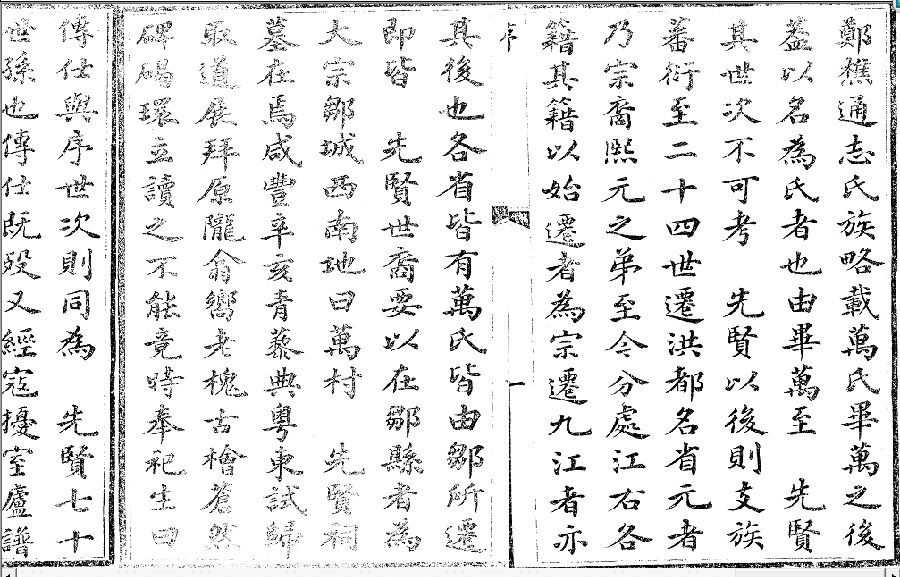 鄭樵通志氏族略載萬氏畢萬之後
葢以名為氏者也由畢萬至　先賢
其世次不可考　先賢以後則支族
蕃衍至二十四世遷洪都名省元者
乃宗裔熙元之弟至今分處江右各
籍其籍以始遷者為宗遷九江者亦
序
一
其後也各省皆有萬氏皆由鄒所遷
即皆　先賢世裔要以在鄒縣者為
大宗鄒城西南地曰萬村　先賢祠
墓在焉咸豐辛亥青藜典粵東試歸
取道展拜原隴翕嚮老槐古檜蒼然
碑碣環立讀之不能竟時奉祀生曰
傳仕與序世次則同為　先賢七十
世孫也傳仕既歿又經寇擾室廬譜